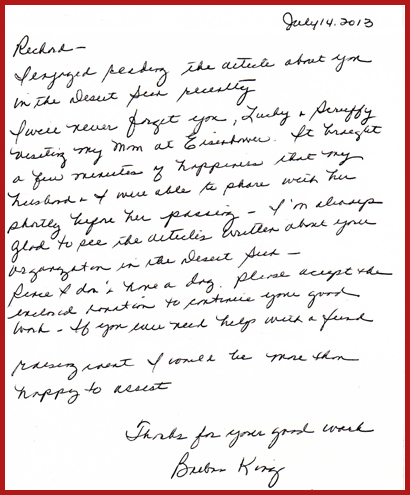 July 14. 2013
Richard –
I enjoyed reading the article about you
in the Desert Sun recently
I will never forget you, Lucky + Scruffy
visiting my Mom at Eisenhower. It brought
a few minutes of happiness that my
husband + I were able to share with her
shortly before her passing – I'm always
glad to see the articles written about your
organization in the Desert Sun –
Since I don't have a dog. Please accept the
enclosed donation to continue your good
work – If you ever need help with a fund
raising event I would be more than
happy to assist
Thanks for your good work
King